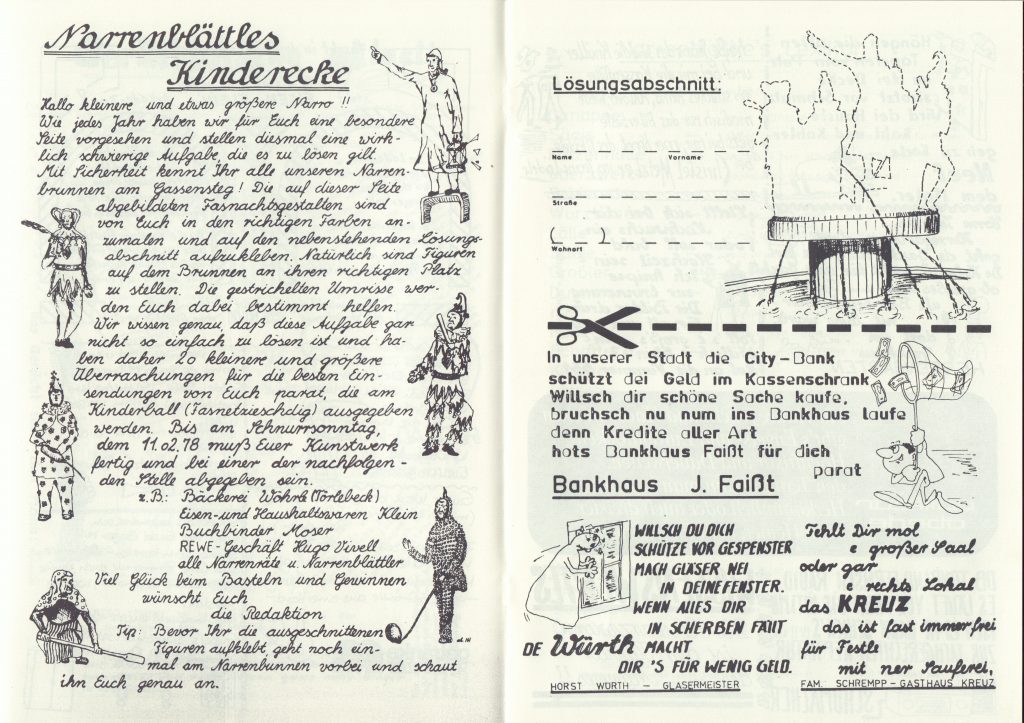 Narrenblättles
Kinderecke
Hallo kleinere und etwas größere Narro !!
Wie jedes Jahr haben wir für Euch eine besondere
Seite vorgesehen und stellen diesmal eine wirk-
lich schwierige Aufgabe, die es zu lösen gilt.
Mit Sicherheit kennt Ihr alle unseren Narren-
brunnen am Gassensteg! Die auf dieser Seite
abgebildeten Fasnachtsgestalten sind
von Euch in den richtigen Farben an-
zumalen und auf den nebenstehenden Lösungs-
abschnitt aufzukleben. Natürlich sind Figuren
auf dem Brunnen an ihren richtigen Platz
zu stellen. Die gestrichelten Umrisse wer-
den Euch dabei bestimmt helfen.
Wir wissen genau, daß diese Aufgabe gar
nicht so einfach zu lösen ist und ha-
ben daher 20 kleinere und größere
Überraschungen für die besten Ein-
sendungen von Euch parat, die am
Kinderball (Fasnetzieschdig) ausgegeben
werden. Bis am Schnurrsonntag,
dem 11.02.78 muß Euer Kunstwerk
fertig und bei einer der nachfolgen-
den Stelle abgegeben sein.
z.B: Bäckerei Wöhrle (Törlebeck)
Eisen- und Haushaltswaren Klein
Buchbinder Moser
REWE-Geschäft Hugo Vivell
alle Narrenräte u. Narrenblättler
Viel Glück beim Basteln und Gewinnen
wünscht Euch
die Redaktion
Tip: Bevor Ihr die ausgeschnittenen
Figuren aufklebt, geht noch ein-
mal am Narrenbrunnen vorbei und schaut
ihn Euch genau an.
Lösungsabschnitt:
Name Vorname
Straße
( )
Wohnort
In unserer Stadt die City-Bank
schützt dei Geld im Kassenschrank
Willsch dir schöne Sache kaufe,
bruchsch nu num ins Bankhaus laufe
denn Kredite aller Art
hots Bankhaus Faißt für dich
parat
Bankhaus J. Faißt
WILLSCH DU DICH
SCHÜTZE VOR GESPENSTER
MACH GLÄSER NEI
IN DEINE FENSTER.
WENN ALLES DIR
IN SCHERBEN FÄLLT
DE Würth MACHT
DIR 'S FÜR WENIG GELD.
HORST WÜRTH - GLASERMEISTER
Fehlt Dir mol
e großer Saal
oder gar
e rechts Lokal
das KREUZ
das ist fast immer frei
für Festle
mit ner Sauferei,
FAM. SCHREMPP - GASTHAUS KREUZ